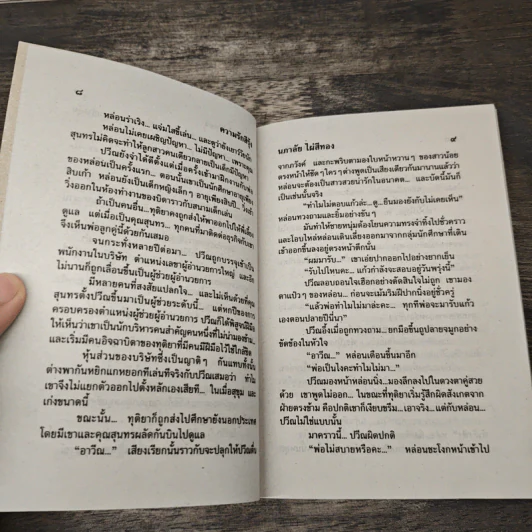 ๘
ความรักสีรุ้ง
หล่อนร่าเริง... แจ่มใสขึ้นเล่น... และดูว่ายังเยาว์วัยนัก
หล่อนไม่เคยเผชิญปัญหา... ไม่มีปัญหา... เพราะคุณ
สุนทรไม่คิดจะทำให้ลูกสาวคนเดียวกลายเป็นเด็กมีปัญหา
ปวีณยังจำได้ดีตั้งแต่เมื่อครั้งเข้ามาฝึกงานกับพ่อ
ของหล่อนเป็นครั้งแรก... ตอนนั้นเขาเป็นนักศึกษาอายุยี่สิบ
สิบเก้า หล่อนยังเป็นเด็กหญิงเล็กๆ อายุเพียงสิบปี... วิ่งเล่น
วิ่งออกในห้องทำงานของบิดาราวกับสนามเด็กเล่น
ถ้าเป็นคนอื่น... ทุติยาคงถูกส่งให้พาออกไปให้พี่เลี้ยง
ดูแล แต่เมื่อเป็นคุณสุนทร... ทุกคนที่มาติดต่อธุรกิจกับเขา
จึงเห็นพ่อลูกคู่นี้ด้วยกันเสมอ
จนกระทั่งหลายปีต่อมา... ปวีณถูกบรรจุเข้าเป็น
พนักงานในบริษัท ตำแหน่งเลขาผู้อำนวยการใหญ่ และอีก
ไม่นานก็ถูกเลื่อนขึ้นเป็นผู้ช่วยผู้อำนวยการ
มีหลายคนที่สงสัยแปลกใจ... และไม่เห็นด้วยที่คุณ
สุนทรตั้งปวีณขึ้นมาเป็นผู้ช่วยระดับนี้... แต่หกปีของการ
ครอบครองตำแหน่งผู้ช่วยผู้อำนวยการ ปวีณก็ได้พิสูจน์ฝีมือ
ให้เห็นว่าเขาเป็นนักบริหารคนสำคัญคนหนึ่งที่ไม่น่ามองข้าม...
และเริ่มมีคนอิจฉาบิดาของทุติยาที่มีคนมีฝีมือไว้ใช้ใกล้ชิด
หุ้นส่วนของบริษัทซึ่งเป็นญาติๆ กันแทบทั้งนั้น
ต่างพากันหยิกแกมหยอกทีเล่นทีจริงกับปวีณเสมอว่า ทำไม
เขาจึงไม่แยกตัวออกไปตั้งหลักเองเสียที... ในเมื่อสุขุม และ
เก่งขนาดนี้
ขณะนั้น... ทุติยาก็ถูกส่งไปศึกษายังนอกประเทศ
โดยมีเขาและคุณสุนทรผลัดกันบินไปดูแล
“อาวีณ...” เสียงเรียกนั้นราวกับจะปลุกให้ปวีณตื่น
นภาลัย ไผ่สีทอง
๙
จากภวังค์ และกะพริบตามองใบหน้าหวานๆ ของสาวน้อย
ตรงหน้าให้ชัดๆ ใครๆ ต่างพูดเป็นเสียงเดียวกันมานานแล้วว่า
หล่อนจะต้องเป็นสาวสวยน่ารักในอนาคต... และบัดนี้มันก็
เป็นเช่นนั้นจริง
“ทำไมไม่ตอบแก้วล่ะ...ดู...ยืนมองยังกับไม่เคยเห็น”
หล่อนทวงถามและยิ้มอย่างขันๆ
มันทำให้ชายหนุ่มต้อนความทรงจำทิ้งไปชั่วคราว
และโอบไหล่หล่อนเดินเลี่ยงออกมาจากกลุ่มนักศึกษาที่เดิน
เข้าออกขึ้นลงอยู่ตรงหน้าตึกนั้น
“ผมมารับ...” เขาเอ่ยปากออกไปอย่างยากเย็น
“รับไปไหนคะ... แก้วกำลังจะสอบอยู่วันพรุ่งนี้”
ปวีณลอบถอนใจเฮือกอย่างตัดสินใจไม่ถูก เขามอง
ตาแป๋วๆ ของหล่อน... ก่อนจะเม้มริมฝีปากนิ่งอยู่ชั่วครู่
“แล้วพ่อทำไมไม่มาล่ะคะ... ทุกทีพ่อจะมารับแก้ว
เองตอนปลายปีนี่นา”
ปวีณอึ้งเมื่อถูกทวงถาม... ยกมือขึ้นถูปลายจมูกอย่าง
ขัดข้องในหัวใจ
“อาวีณ...” หล่อนเตือนขึ้นมาอีก
“พ่อเป็นไงคะทำไมไม่มา...”
ปวีณมองหน้าหล่อนนิ่ง...มองลึกลงไปในดวงตาคู่สวย
ด้วย เขาพูดไม่ออก... ในขณะที่ทุติยาเริ่มรู้สึกผิดสังเกตจาก
ฝ่ายตรงข้าม คือปกติเขาก็เงียบขรึม...เอาจริง...แต่กับหล่อน...
ปวีณไม่ใช่แบบนั้น
มาคราวนี้... ปวีณผิดปกติ
“พ่อไม่สบายหรือคะ...” หล่อนชะโงกหน้าเข้าไป